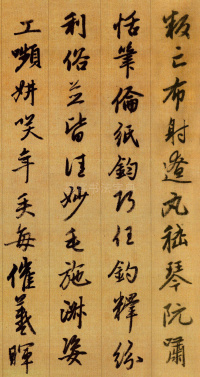 叛亡布射遼丸嵇琴阮嘯
恬筆倫紙鈞巧任釣釋紛
利俗並皆佳妙毛施淑姿
工嚬妍咲年矢每催羲暉